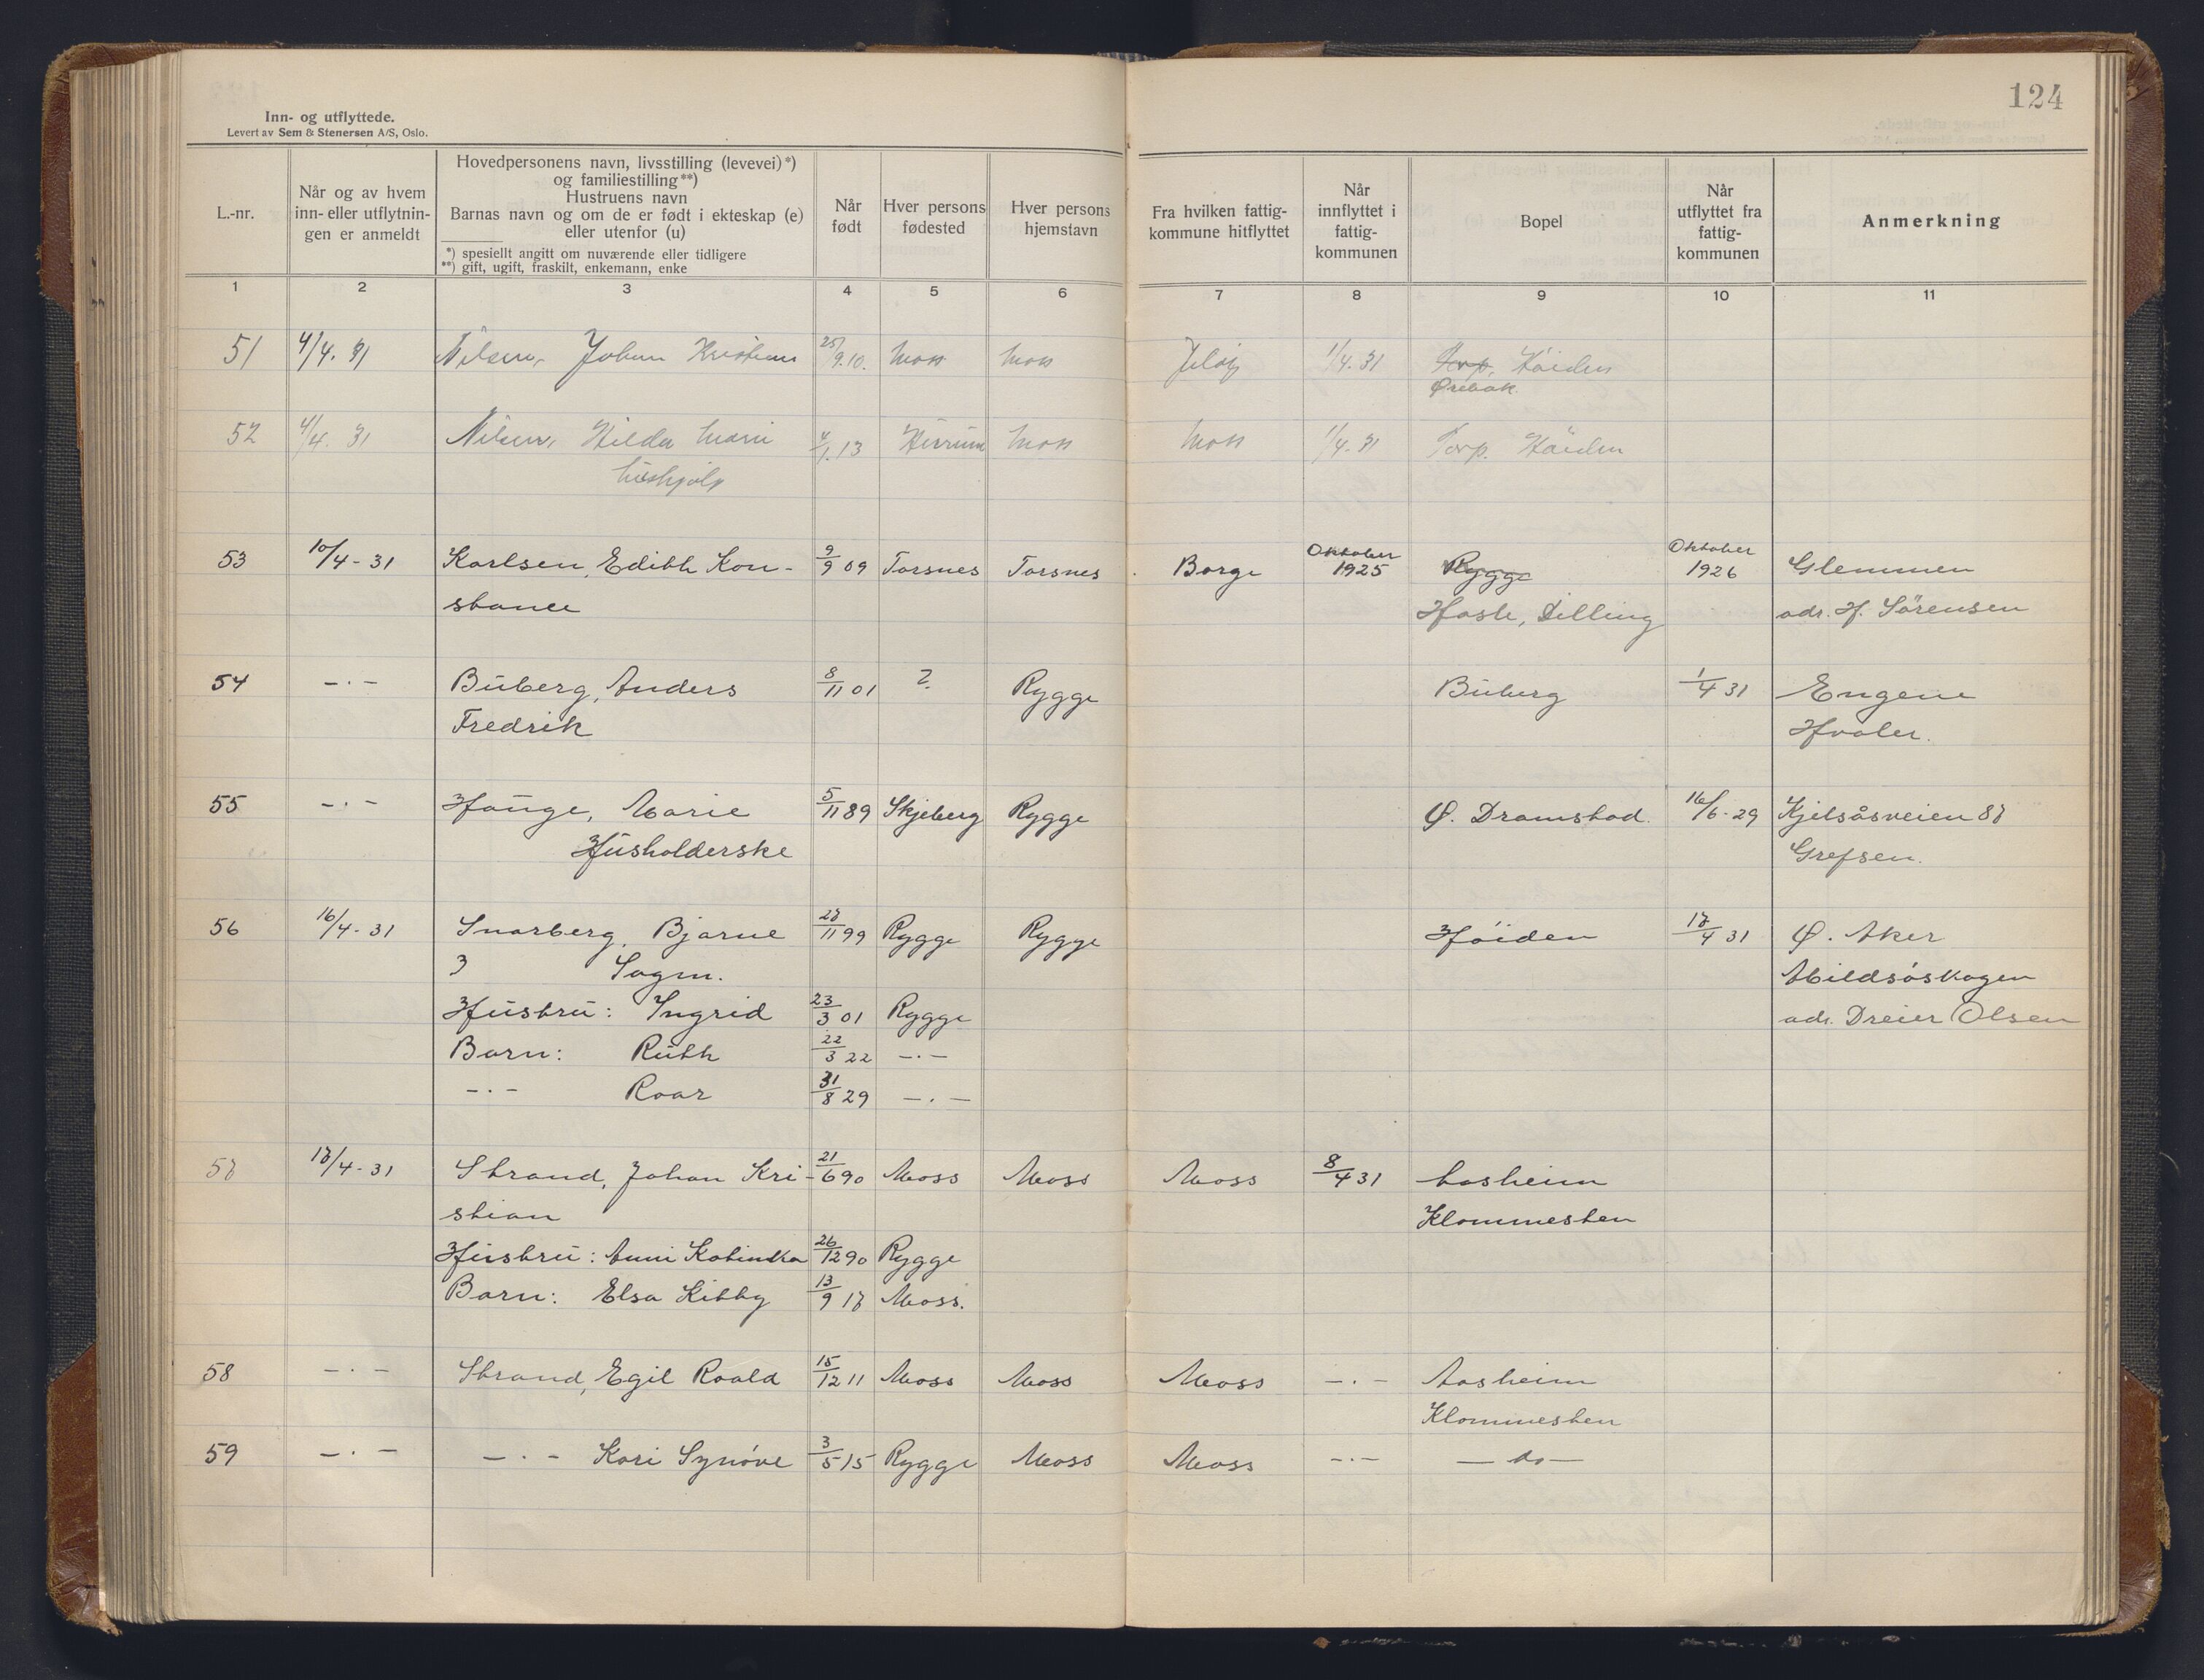 124
Inn- og utflyttede.
Levert av Sem & Stenersen A/S, Oslo.
L.-nr.
Når og av hvem
inn- eller utflytnin-
gen er anmeldt
Hovedpersonens navn, livsstilling (levevei) *)
og familiestilling **)
Hustruens navn
Barnas navn og om de er født i ekteskap (e)
eller utenfor (u)
*) spesiellt angitt om nuværende eller tidligere
**) gift, ugift, fraskilt, enkemann, enke
Når
født
Hver persons
fødested
Hver persons
hjemstavn
Fra hvilken fattig-
kommune hitflyttet
Når
innflyttet i
fattig-
kommunen
Bopel
Når
utflyttet fra
fattig-
kommunen
Anmerkning
1 2 3 4 5 6 7 8 9 10 11
51 4/4. 31 Nilsen, Johan Kristian 25/9.10. Moss Moss Jeløy 1/4. 31 Torp. Höiden
Ørebak
52 4/4. 31 Nilsen, Hilda Marie 4/1.13 Moss Moss 1/4. 31 Torp. Höiden
Hushjelp
53 10/4-31 Karlsen, Edith Kon- 9/9 09 Torsnes Torsnes Borge Oktober 1925 Rygge Oktober 1926 Glemmen
stance Hasle, Dilling adr. H. Sörensen
54 -·- Buberg, Anders 8/11 01 ? Rygge Buberg 1/4 31 Engene
Fredrik Hvaler.
55 -·- Hauge, Marie 5/11 89 Skjeberg Rygge Ø. Dramstad. 16/6-29 Kjelsåsveien 87
Husholderske Grefsen.
56 16/4-31 Snarberg, Bjarne 27/11 99 Rygge Rygge Höiden 17/4 31 Ø. Aker
3 Sagm. Abildsöskogen
Hustru: Ingrid 23/3 01 Rygge adr. Dreier Olsen
Barn: Ruth 22/3 22 -·-
-·- Roar 31/8 29 -·-
57 17/4-31 Strand, Johan Kri- 21/6 90 Moss Moss Moss 8/4 31 Aasheim
stian Klommesten
Hustru: Anni Katinka 26/12 90 Rygge
Barn: Elsa Kitty 13/9 17 Moss.
58 -·- Strand, Egil Roald 15/12 11 Moss Moss Moss -·- Aasheim
Klommesten
59 -·- -·- Kari Synöve 3/5 15 Rygge Moss Moss -·- - do -